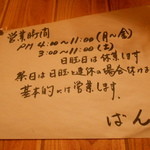 営業時間
PM 4:00〜11:00 (月〜金)
3:00〜11:00 (土)
日曜日は休業します
祭日は日曜と連休の場合休み
基本的には営業します。
ばん